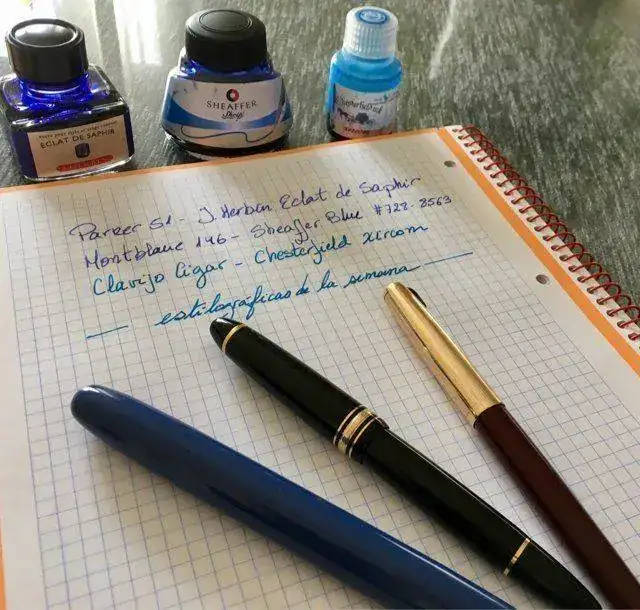 ECLAT DE SAPHIR
SHEAFFER
Parker 51 - J. Herbin Eclat de Saphir
Montblanc 146 - Sheaffer Blue #728-8563
Clavijo Cigar - Chesterfield Zircom
— estilográficas de la semana —